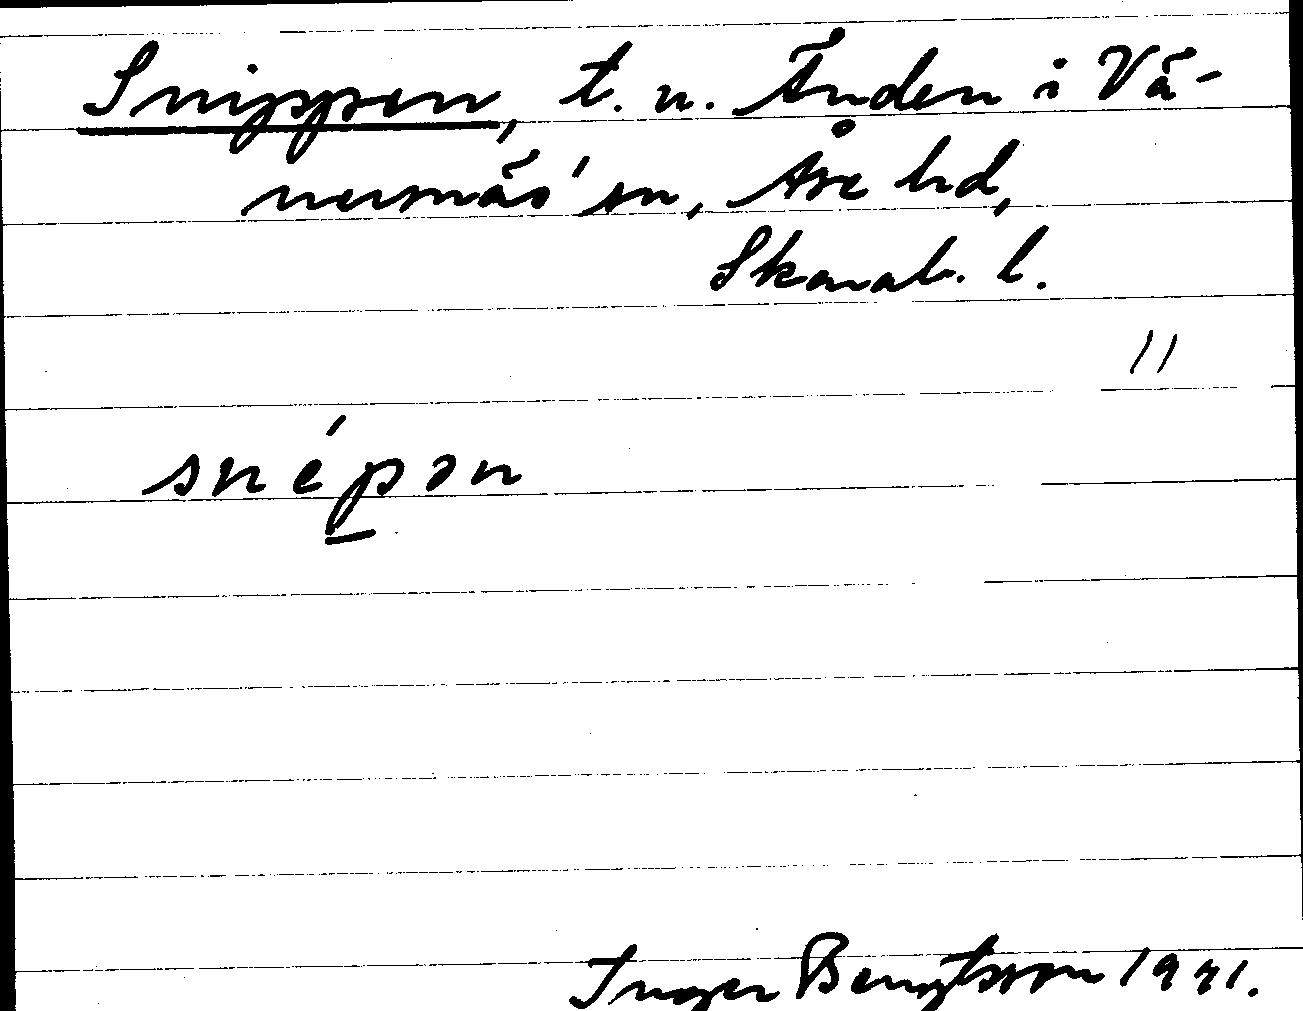 Snippen, t. u. Änden i Vä-
nersnäs' sn, Åse hd,
Skarab. l.
11
snépən
Inger Bengtsson 1941.